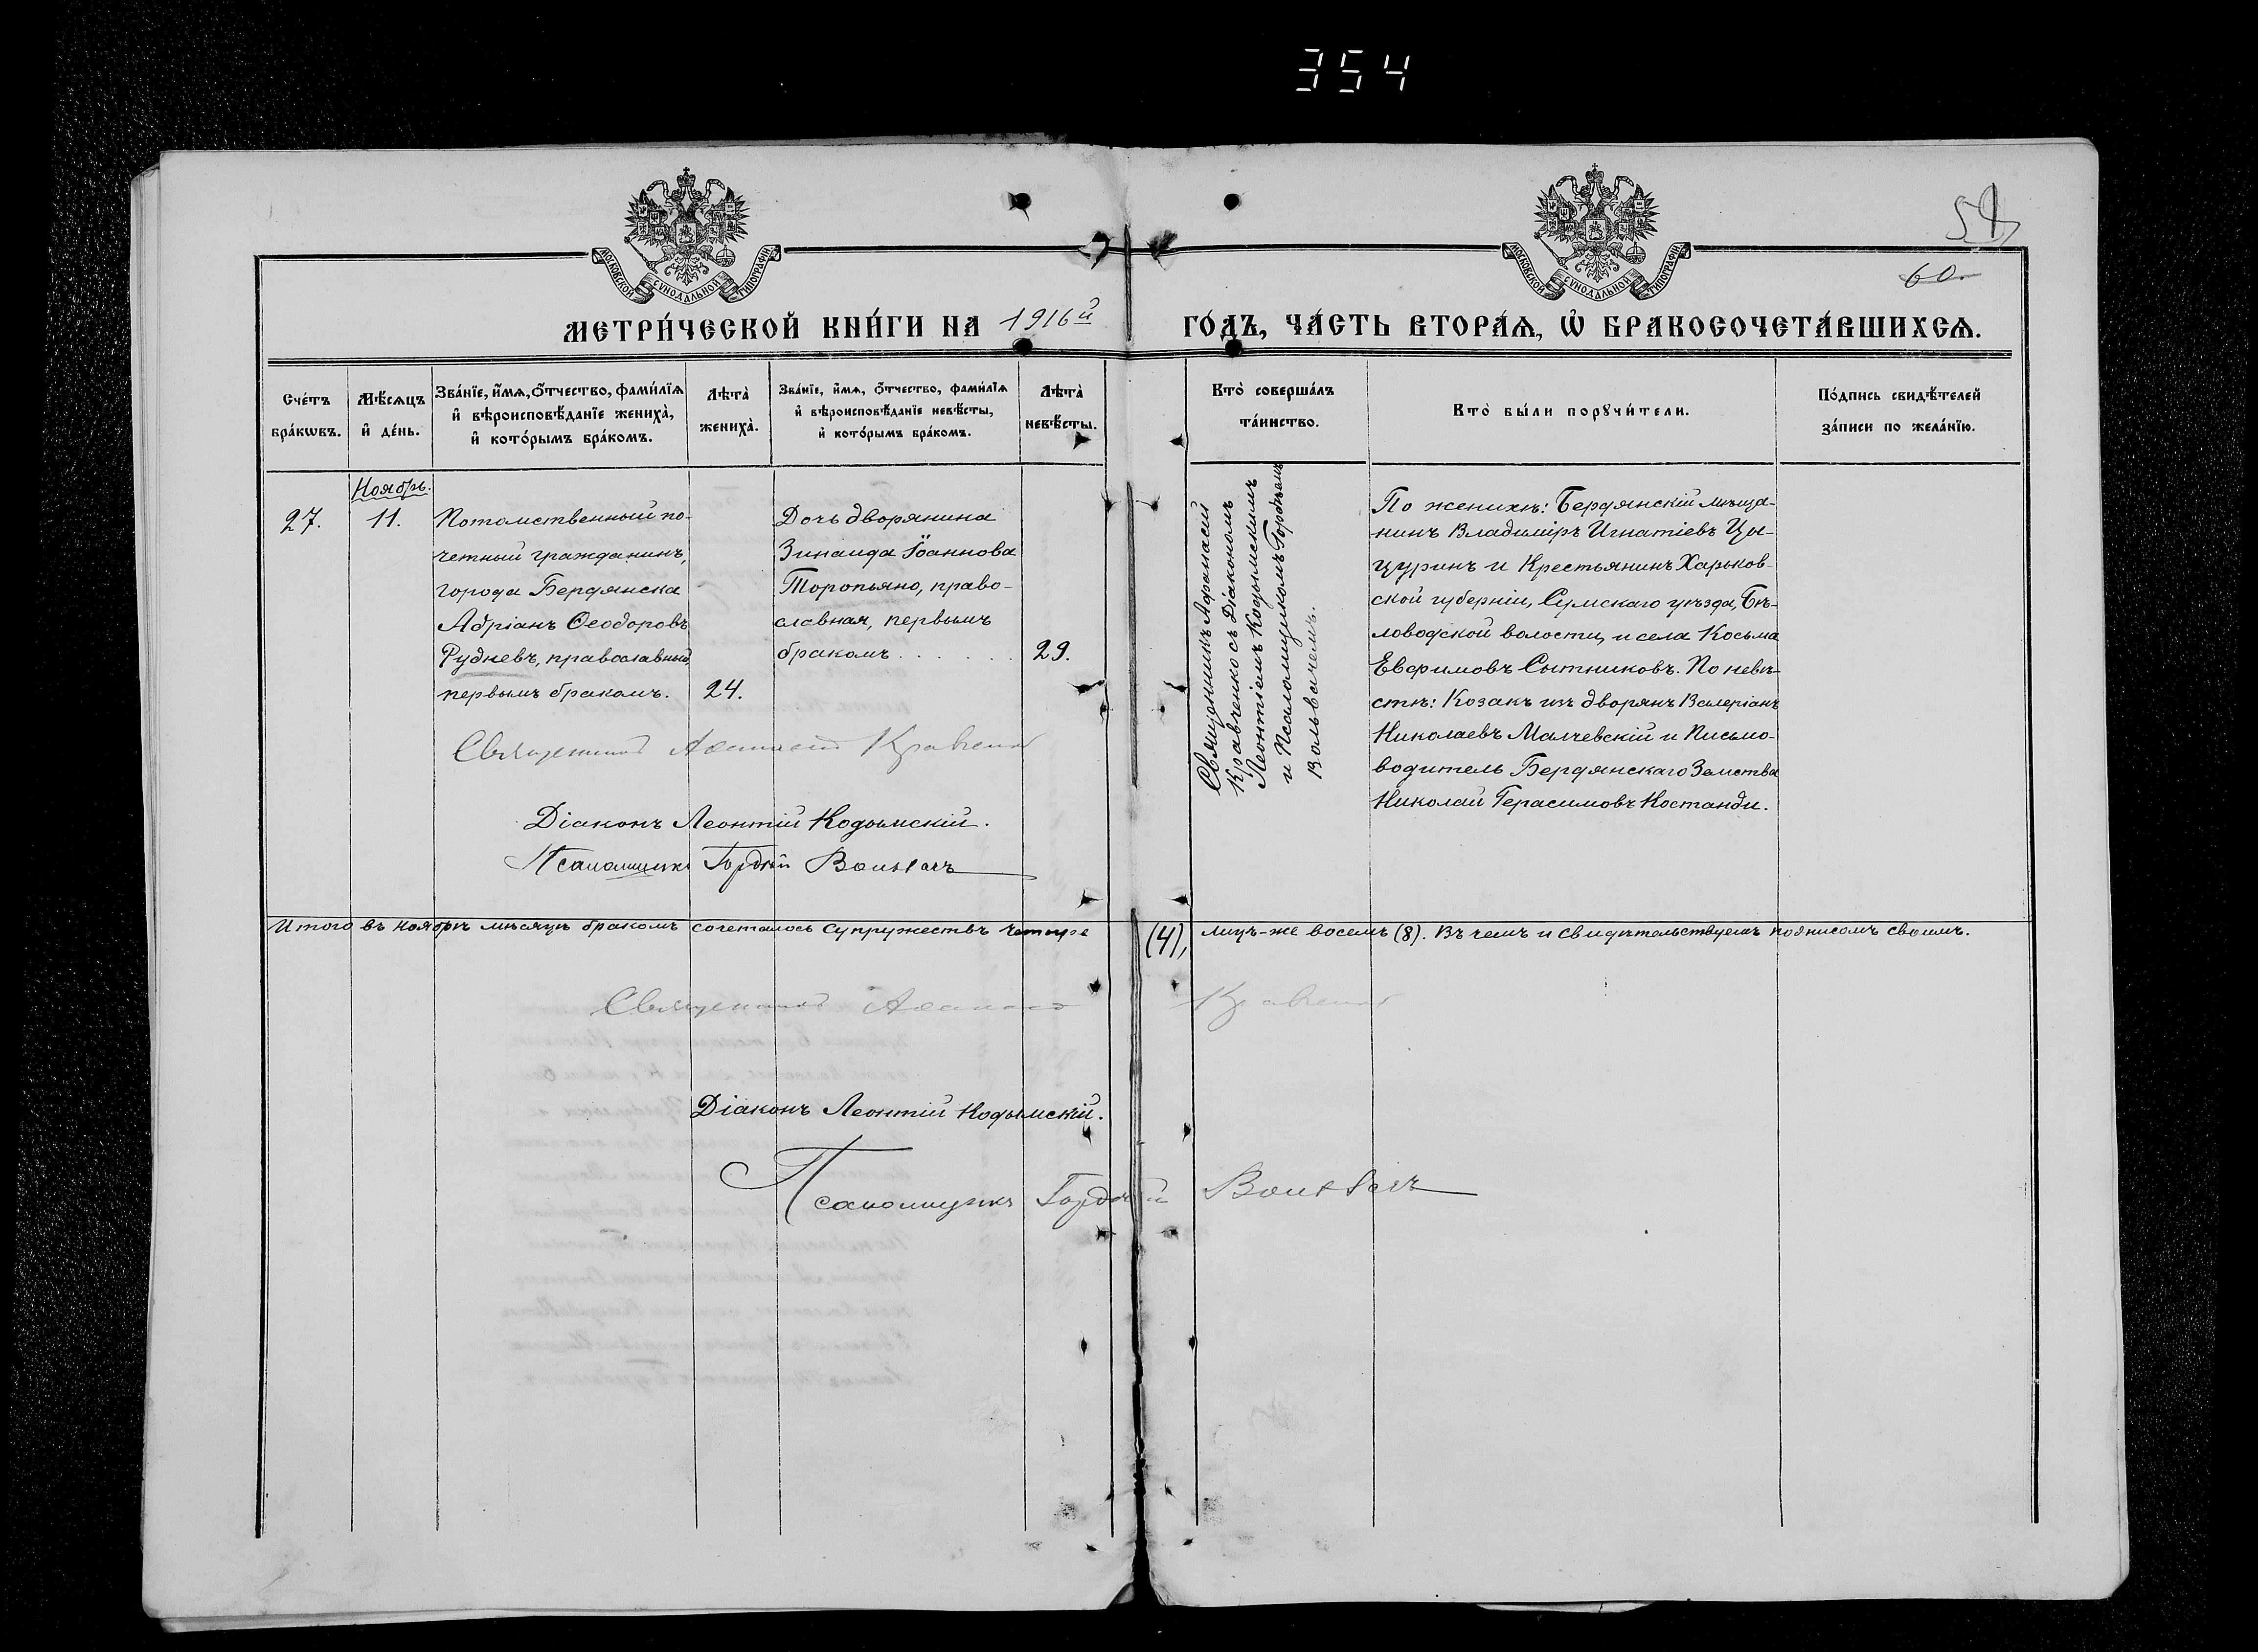 354
59
60.
МОСКОВСКОЙ СУНОДАЛЬНОЙ ТИПОГРАФІИ
МОСКОВСКОЙ СУНОДАЛЬНОЙ ТИПОГРАФІИ
МЕТРИ́ЧЕСКОЙ КНИ́ГИ НА 1916й ГО́ДЪ, ЧА́СТЬ ВТОРА́Ѧ, Ѽ БРАКОСОЧЕТА́ВШИХСѦ.
Сче́тъ бра́кѡвъ.
Мѣ́сѧцъ и҆ де́нь.
Зва́нїе, и҆́мѧ, ѻ҆́тчество, фами́лїѧ
и҆ вѣроисповѣ́данїе жениха̀,
и҆ кото́рымъ бра́комъ.
Лѣта̀ жениха̀.
Зва́нїе, и҆́мѧ, ѻ҆́тчество, фами́лїѧ
и҆ вѣроисповѣ́данїе невѣ́сты,
и҆ кото́рымъ бра́комъ.
Лѣта̀ невѣ́сты.
Кто̀ соверша́лъ
та́инство.
Кто̀ бы́ли порꙋчи́тели.
По́дпись свидѣ́телей
за́писи по жела́нїю.
Ноябрь.
27.
11.
Потомственный по-
четный гражданинъ,
города Бердянска
Адріанъ Ѳеодоровъ
Рудневъ, православный,
первымъ бракомъ.
24.
Дочь дворянина
Зинаида Іоаннова
Торопьяно, право-
славная, первымъ
бракомъ . . . . . .
29.
Священникъ Афанасій
Кравченко съ Діакономъ
Леонтіемъ Кодымскимъ
и Псаломщикомъ Гордѣемъ
Вольвачемъ.
По женихѣ: Бердянскій мѣща-
нинъ Владиміръ Игнатіевъ Цы-
цуринъ и Крестьянинъ Харьков-
ской губерніи, Сумскаго уѣзда, Бѣ-
ловодской волости, и села Косьма
Евфимовъ Сытниковъ. По невѣ-
стѣ: Козакъ изъ дворянъ Валеріанъ
Николаевъ Малчевскій и Письмо-
водитель Бердянскаго Земства
Николай Герасимовъ Костанди.
Священникъ Аѳанасій Кравченко
Діаконъ Леонтій Кодымскій.
Псаломщикъ Гордѣй Вольвачъ
Итого въ ноябрѣ мѣсяцѣ бракомъ сочеталось супружествъ четыре (4), лицъ-же восемь (8). Въ чемъ и свидѣтельствуемъ подписомъ своимъ.
Священникъ Аѳанасій Кравченко
Діаконъ Леонтій Кодымскій.
Псаломщикъ Гордѣй Вольвачъ